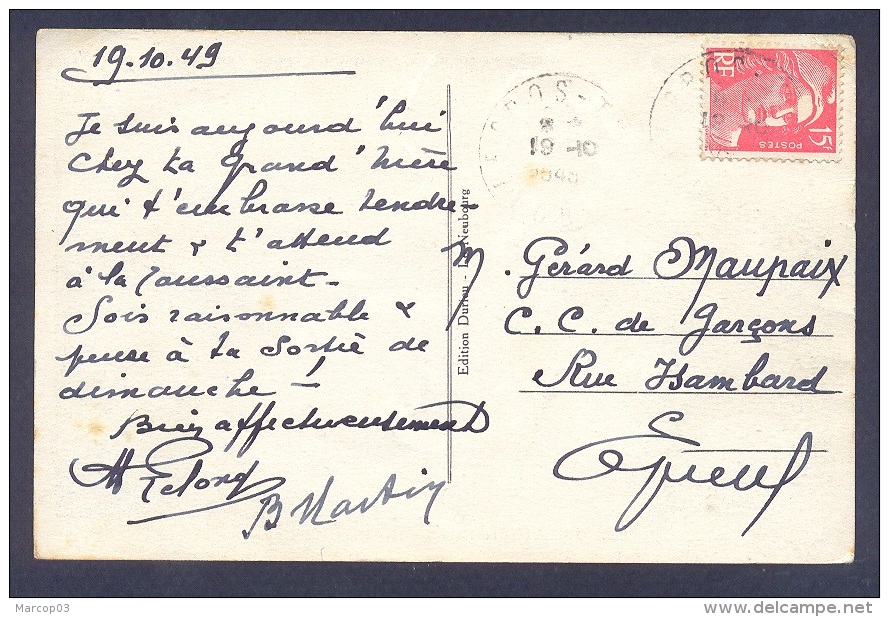 19.10.49
Je suis aujourd'hui
chez ta Grand'Mère
qui t'embrasse tendre-
ment & t'attend
à la Toussaint.
Sois raisonnable &
pense à ta Sortie de
dimanche !
Bien affectueusement
B Martin
Edition Durieu - Le Neubourg
M. Gérard Maupaix
C. C. de Garçons
Rue Isambard
RF
15F
POSTES
19
1949
Marcop03
www.delcampe.net